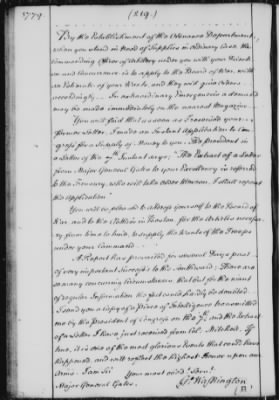 1779. (219.)
By the Establishment of the Ordnance Department,
when you stand in Need of Supplies in Ordinary Cases the
Commanding Officer of Artillery under you with your Direct-
ion and Concurrence is to apply to the Board of War, with
an Estimate of your Wants, and they will give Orders
accordingly. In extraordinary Emergencies a demand
may be made immediately on the nearest Magazine.
You will find that as soon as I received your
former Letter, I made an Instant Application to Con-
gress for a Supply of Money to you. The President in
a Letter of the 7th Instant says, "The Extract of a Letter
from Major General Gates to your Excellency is referred
to the Treasury, who will take Order thereon. I shall repeat
the application"
You will be pleased to address yourself to the Board of
War and to the Clothier in Boston for the Articles necessa-
ry from time to time, to supply the Wants of the Troops
under your Command.
A Report has prevailed for several Days past
of very important Success to the Southward; There are
so many concurring Circumstances that but for the want
of regular Information the fact could hardly be doubted.
I send you a Copy of a Piece of Intelligence transmitted
me by the President of Congress on the 7th, and the Extract
of a Letter I have just received from Col. Mitchell. If
true, it is one of the most glorious Events that could have
happened, and will reflect the highest Honor upon our
Arms. I am Sir Your most obedt Servt
Major General Gates. Go. Washington